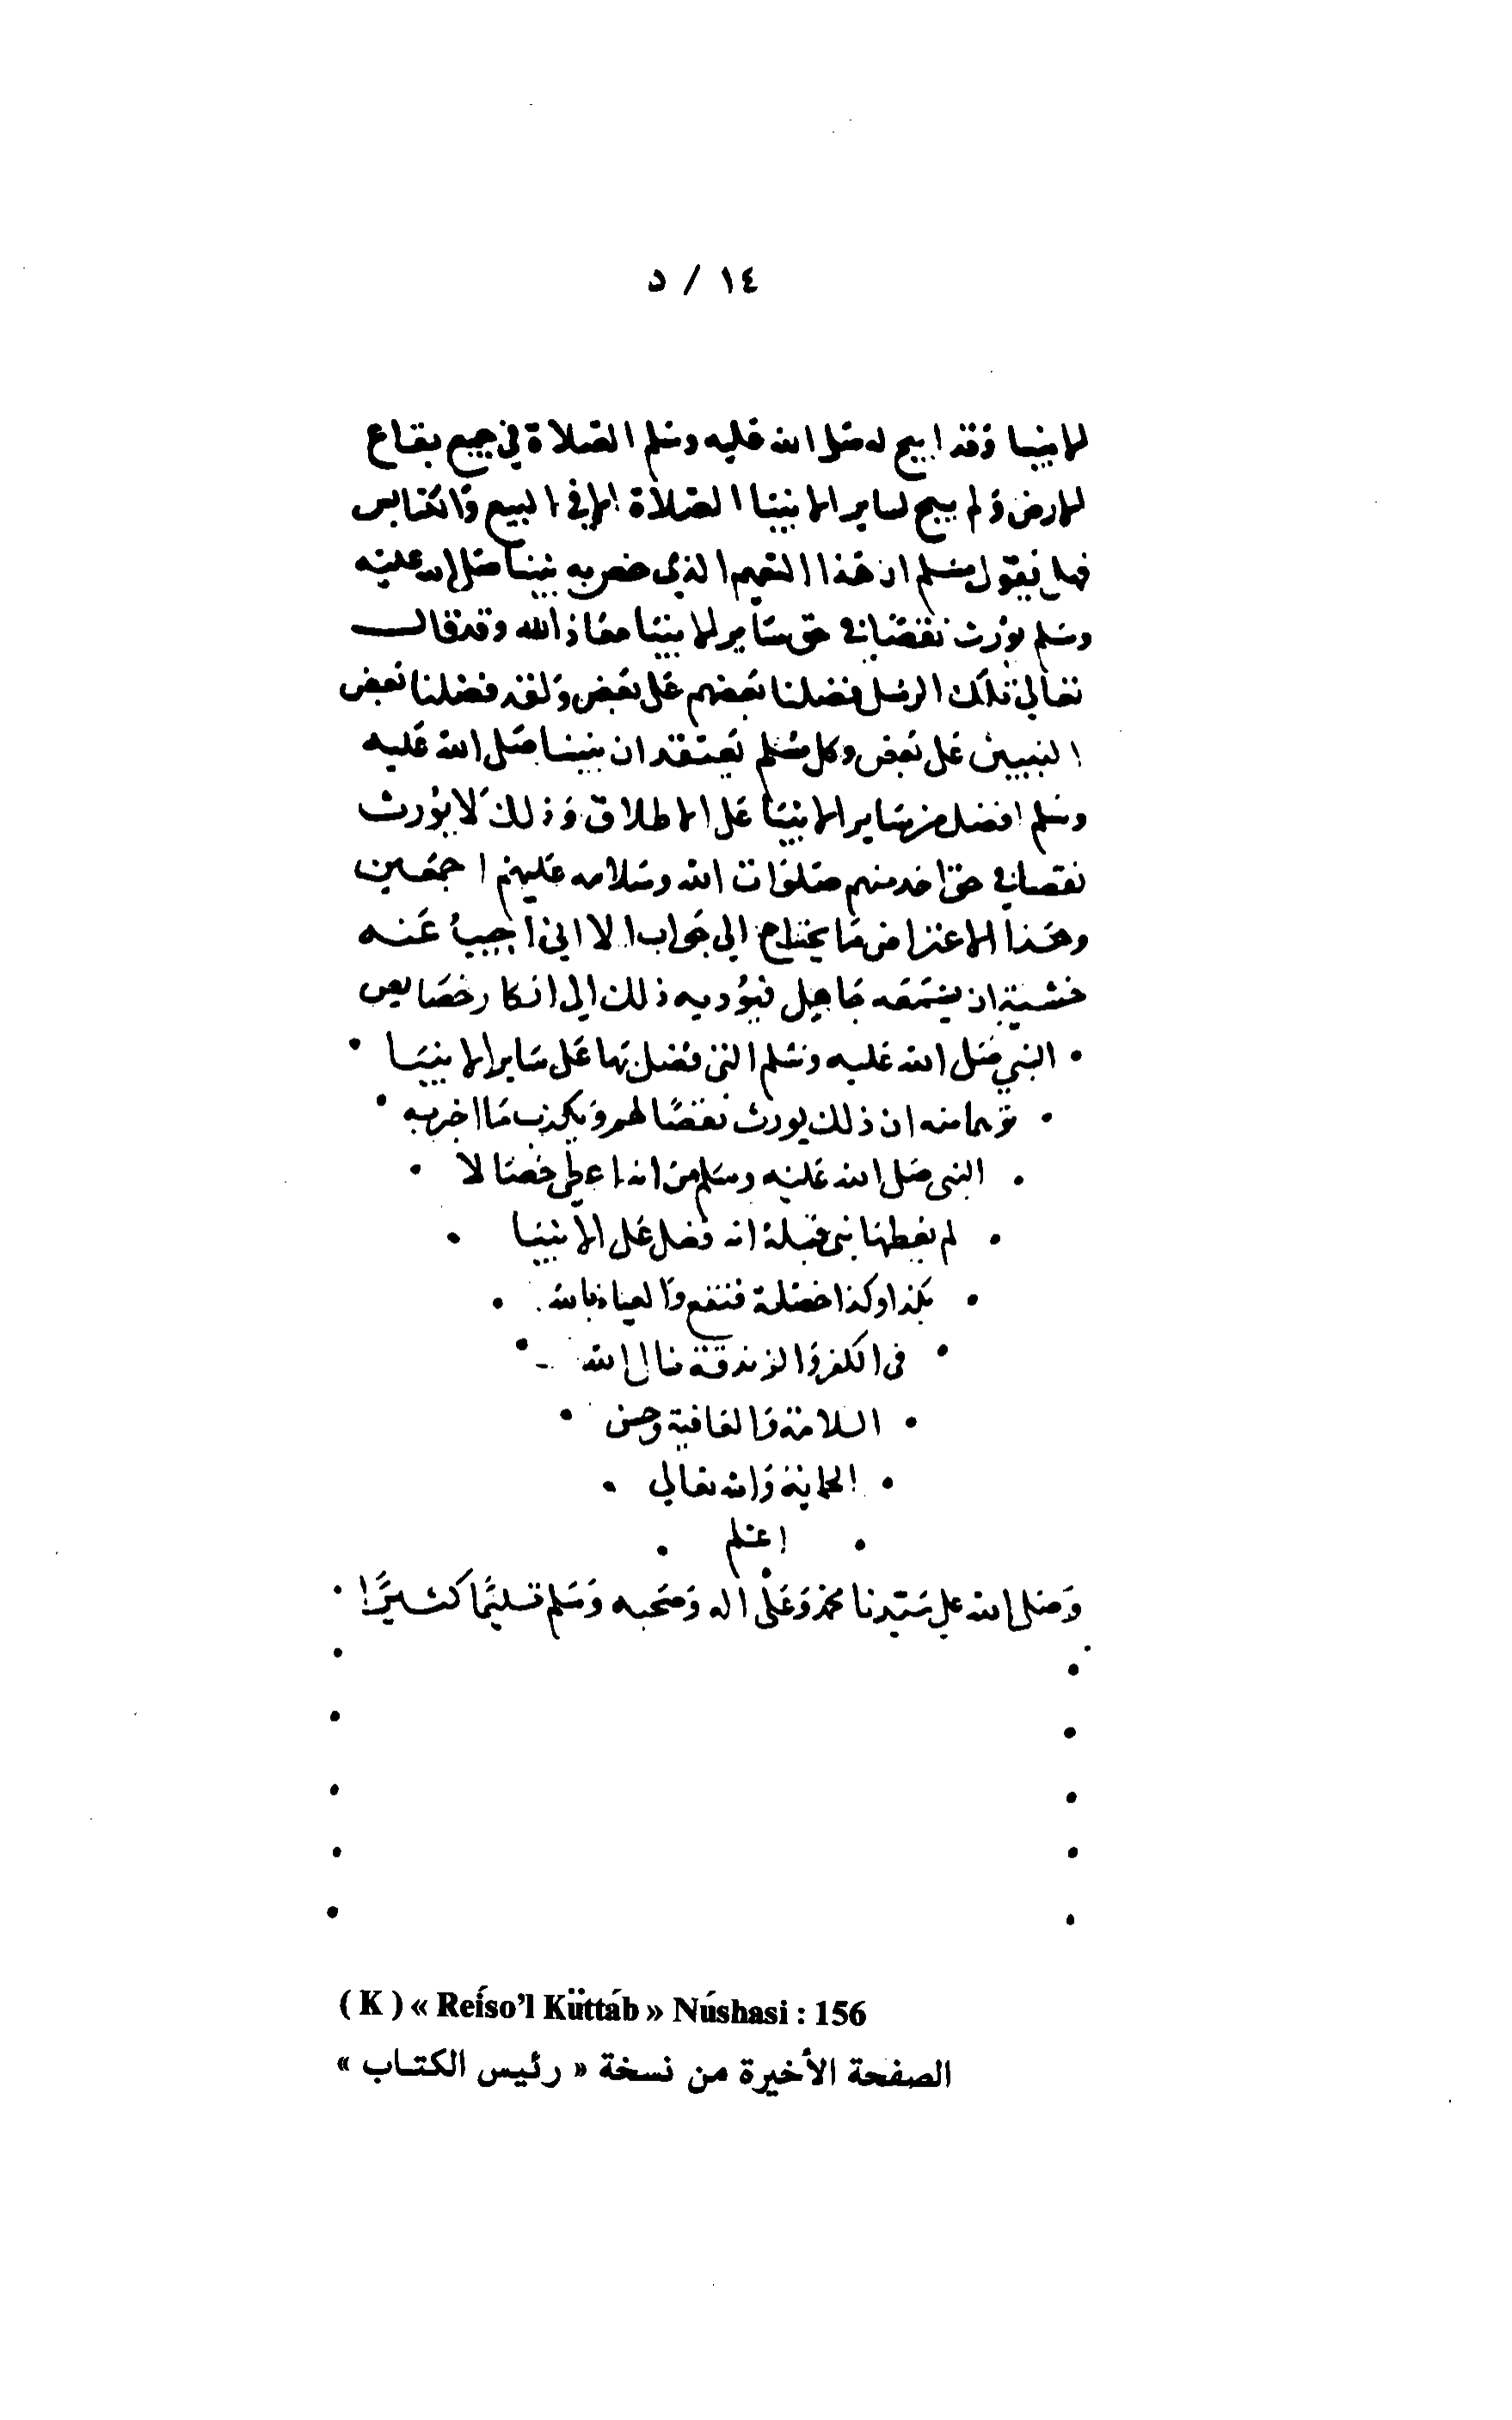 ١٤ / ٥
الانبيا وقد ابيح له صلى الله عليه وسلم الصلاة في جميع بقاع
الارض ولم يبح لساير الانبيا الصلاة الا في البيع والكنايس
فهل يقول مسلم ان هذا التعميم الذي خص به نبينا صلى الله عليه
وسلم يورث نقصا في حق ساير الانبيا معاذ الله وقد قال
تعالى تلك الرسل فضلنا بعضهم على بعض ولقد فضلنا بعض
النبيين على بعض وكل مسلم يعتقد ان نبينا صلى الله عليه
وسلم افضل من ساير الانبيا على الاطلاق وذلك لا يؤرث
نقصا في حق احد منهم صلوات الله وسلامه عليهم اجمعين
وهذا الاعتراض ما يحتاج الى جواب الا اني اجيب عنه
خشية ان يسمعه جاهل فيؤديه ذلك الى انكار خصايص
• النبي صلى الله عليه وسلم التي فضل بها على ساير الانبيا •
• توهما منه ان ذلك يورث نقصا لهم ويكذب ما اخبر به •
• النبي صلى الله عليه وسلم من انه اعطي خصالا •
• لم يعطها نبي قبله انه فضل على الانبيا •
• بكذا وكذا خصلة فتقع والعياذ بالله •
• في الكفر والزندقة نسال الله •
• السلامة والعافية وحسن •
• الخاتمة والله تعالى •
• اعلم •
وَصَلى الله على سَيّدنا محمد وَعَلى اله وَصَحبه وَسَلم تسليمًا كثيرًا •
( K ) « Reíso’l Küttáb » Núshasi : 156
الصفحة الأخيرة من نسخة « رئيس الكتاب »